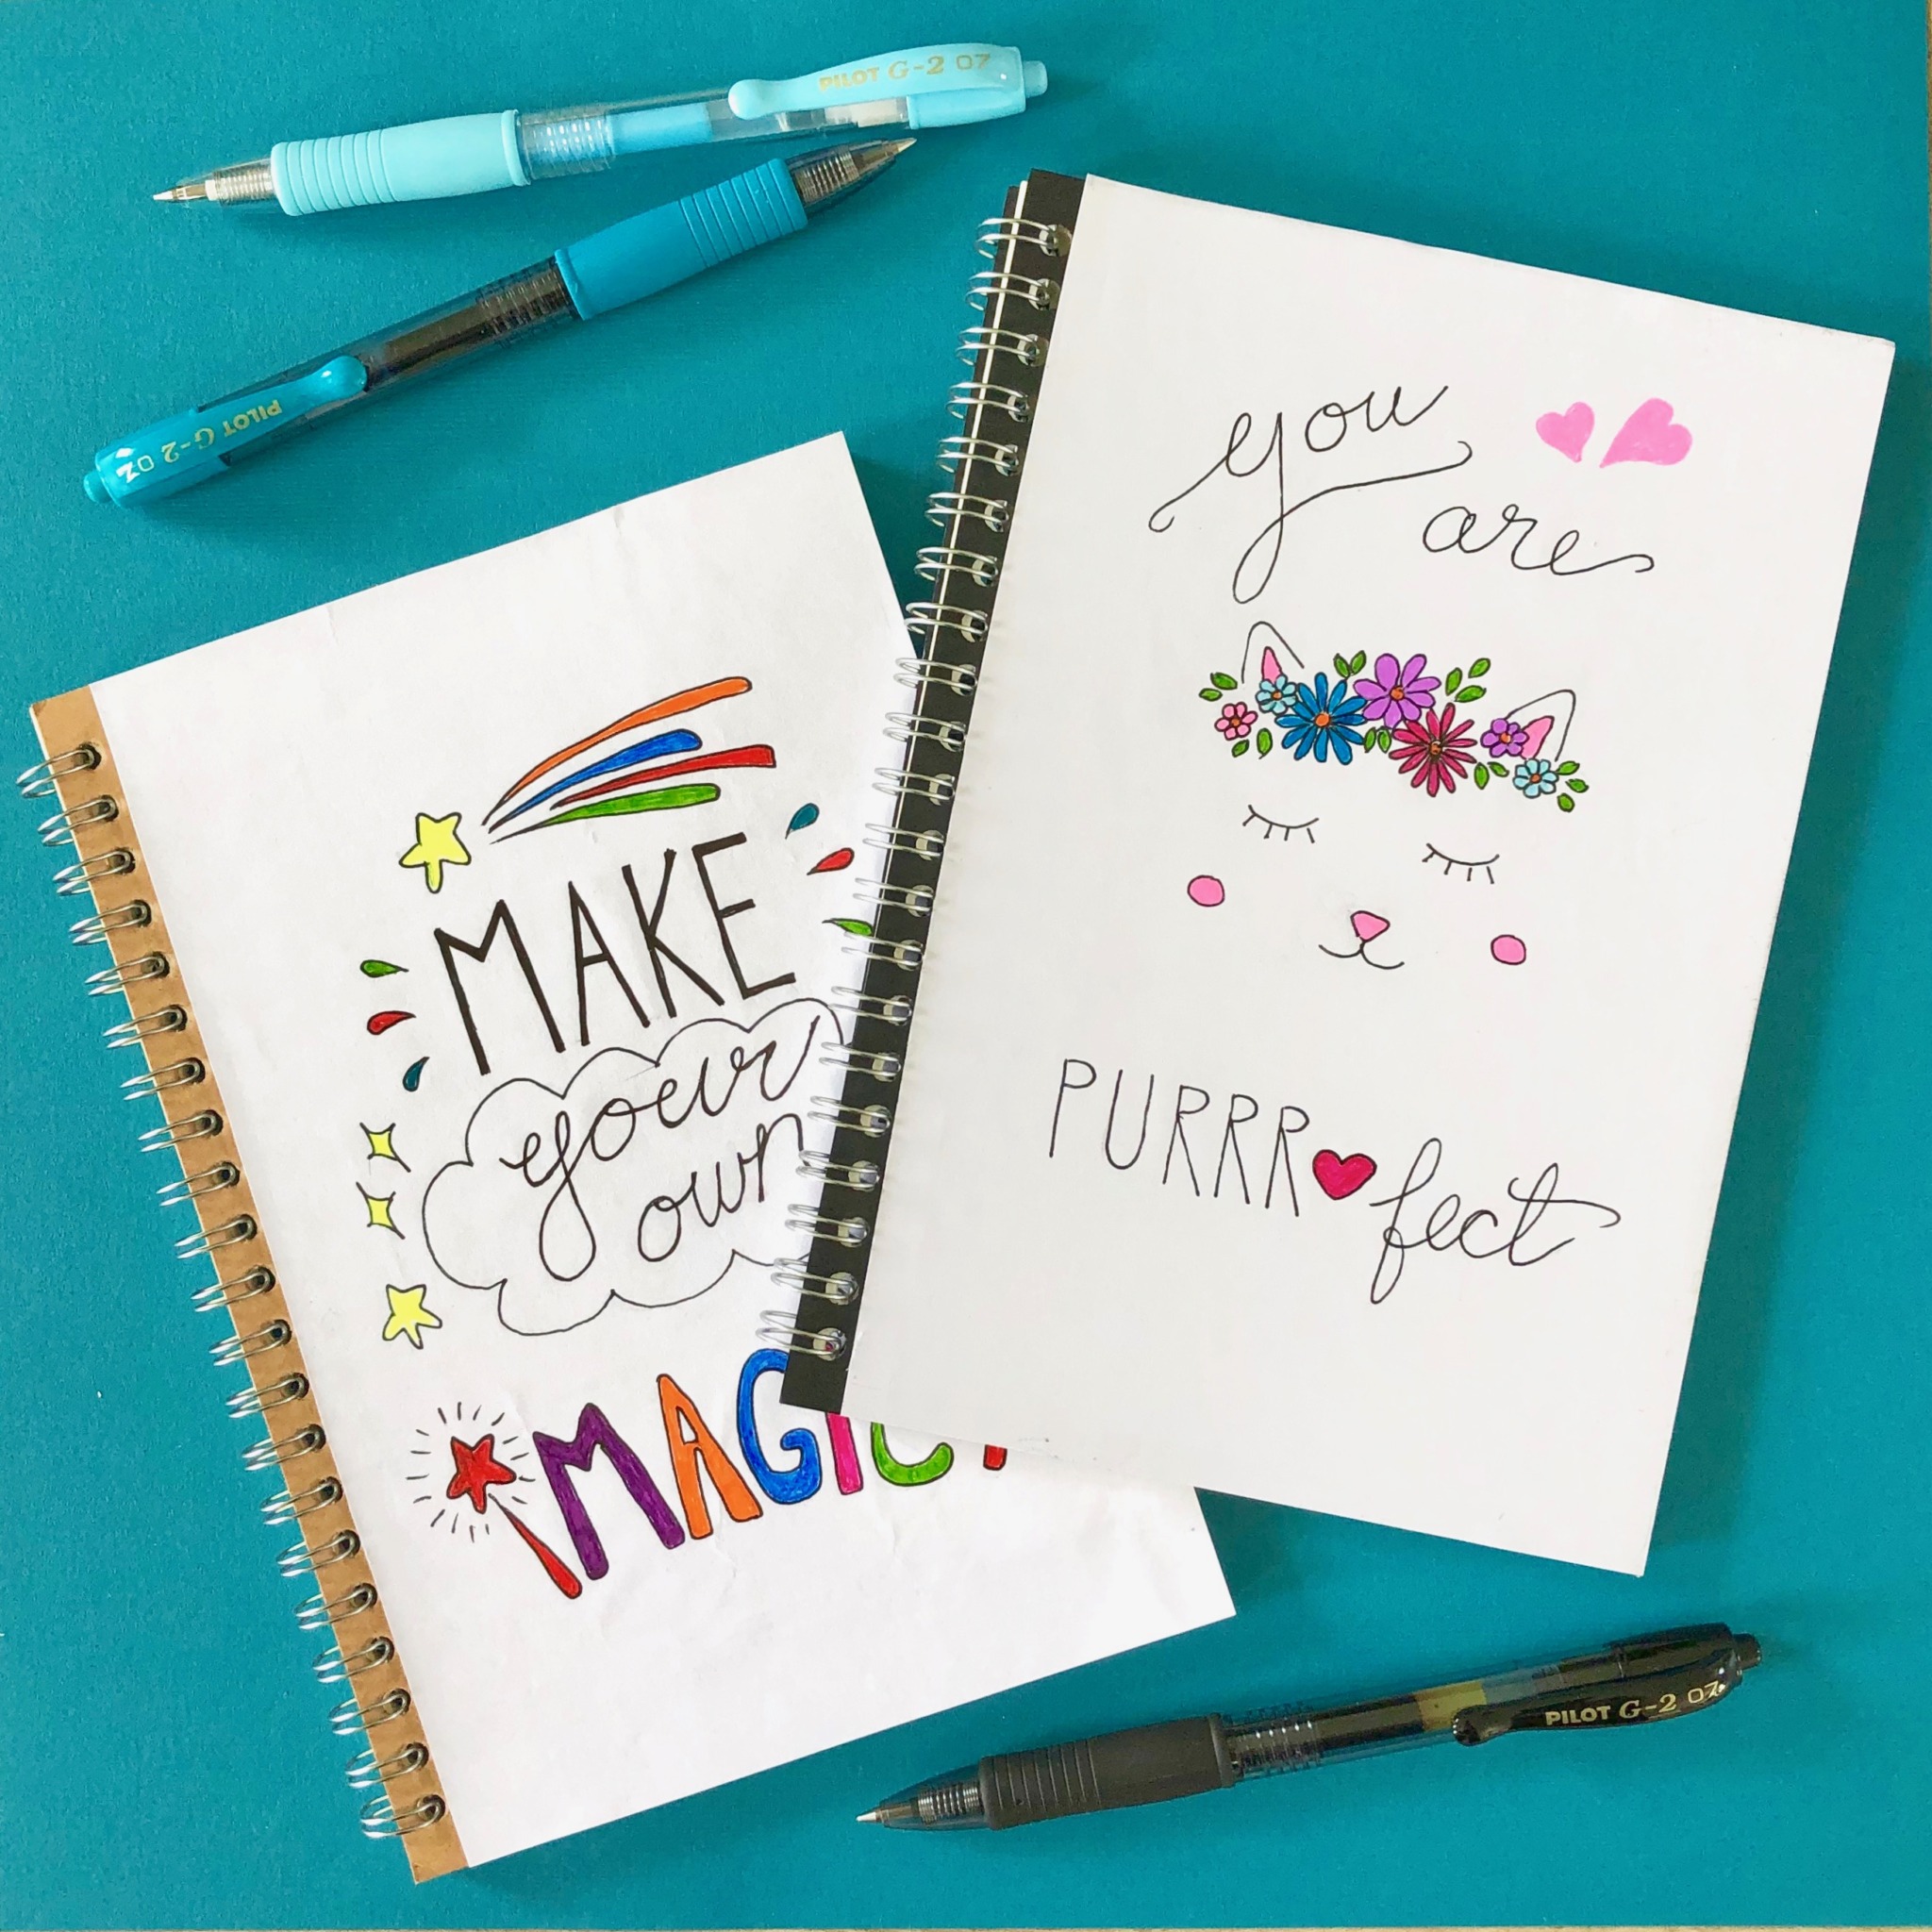 PILOT G-2 07
PILOT G-2 07
MAKE
your
own
MAGIC
you
are
PURRR
fect
PILOT G-2 07